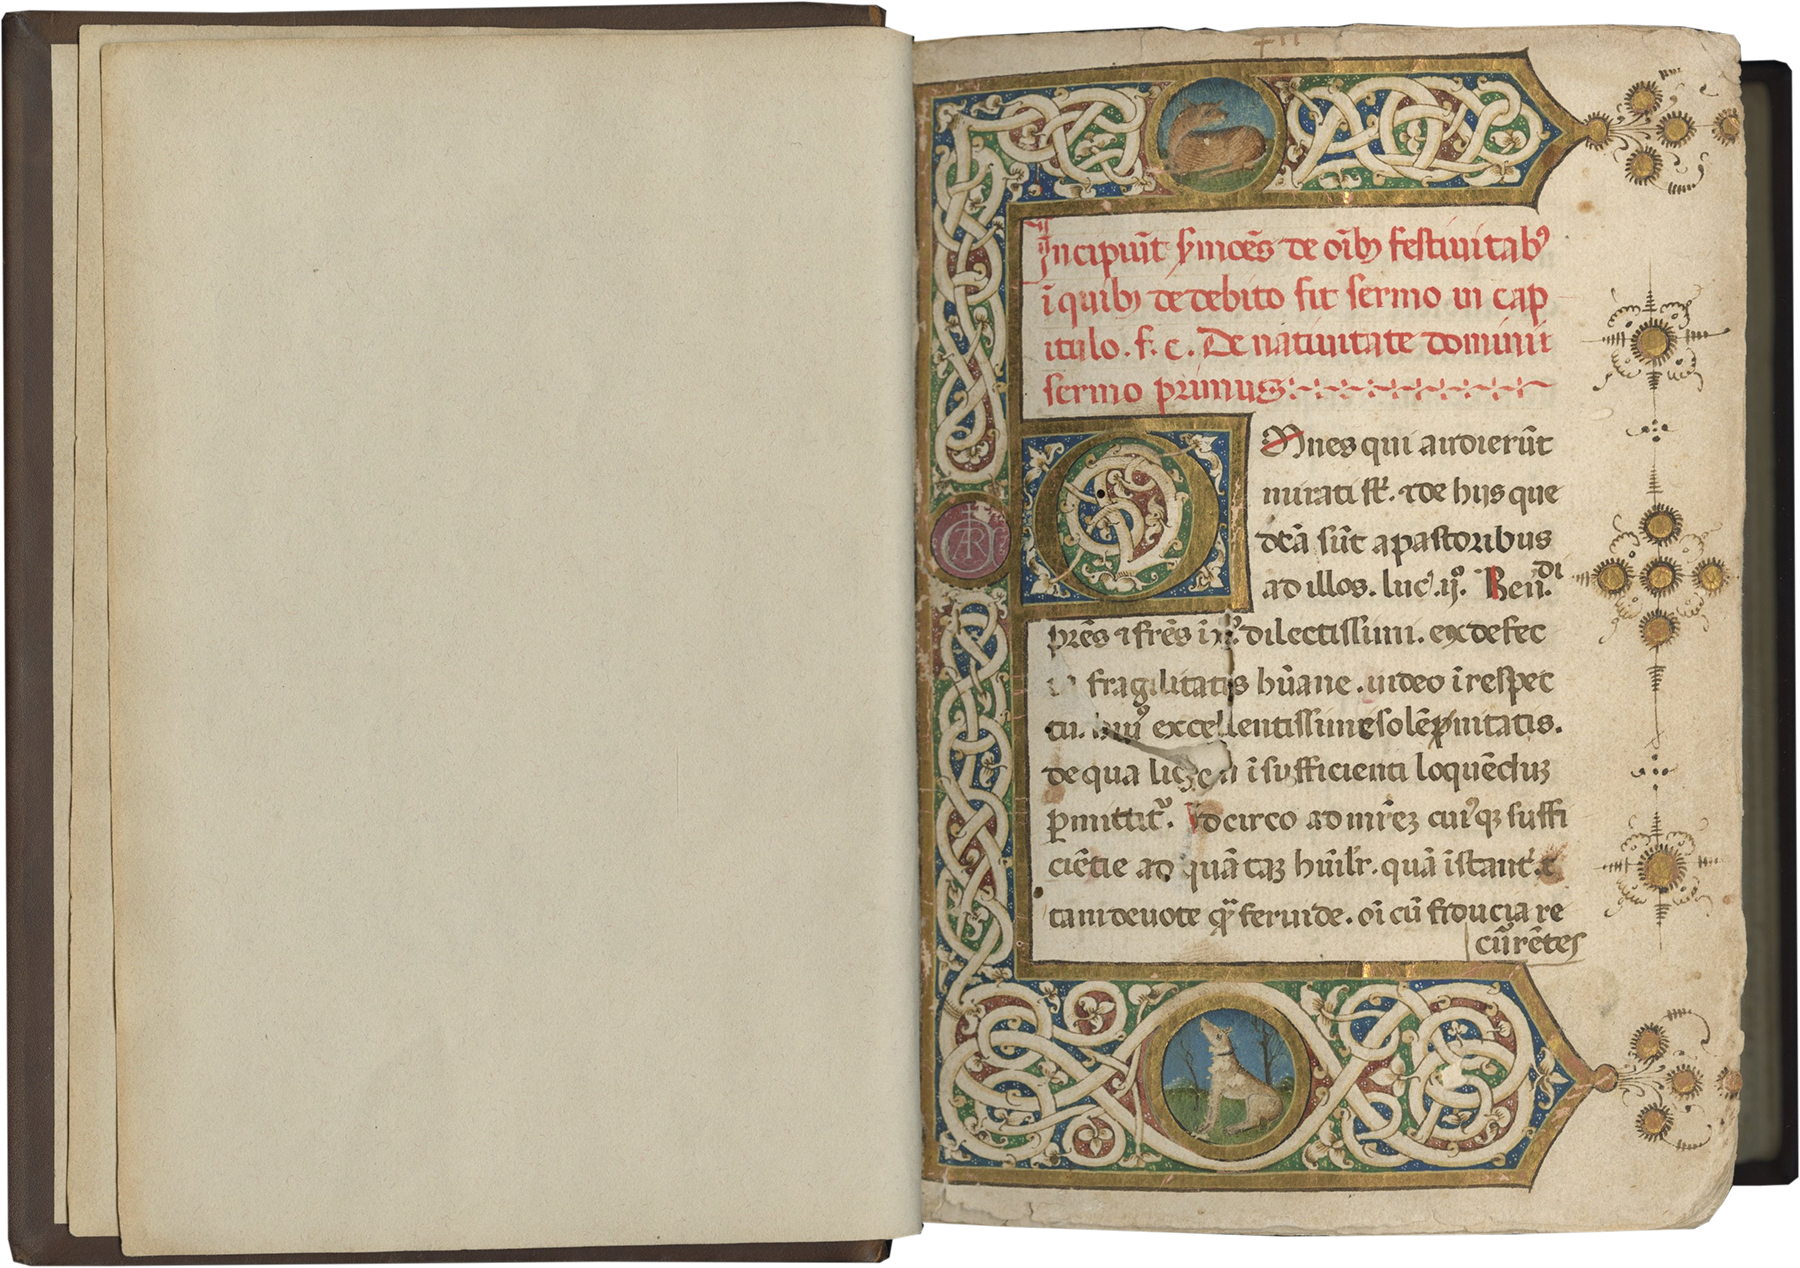 Incipiu̅t s̅mo̅e̅s de o̅ib9 festiuitab9
i̅ quib9 de debito fit sermo in cap
itulo. f. c. De natiuitate domini
sermo primus
Omnes qui audieru̅t
mirati su̅t. et de hijs que
dc̅a su̅t a pastoribus
ad illos. luc. ij. Ben.di
pr̅e̅s et fr̅e̅s i̅ x̅o̅ dilectissimi. ex defec
fragilitatis hu̅ane. uideo i̅ respec
tu. hui9 excellentissime sole̅pnitatis.
de qua i̅sufficienti loque̅duz
p̅mittit̅. Idcirco ad mr̅ez cui9q3 suffi
cie̅tie ad qua̅ ta3 hu̅ilr̅. qua̅ i̅sta̅t̅. et
tam deuote q̅ feruide. o̅i cu̅ fiducia re
cu̅re̅tes